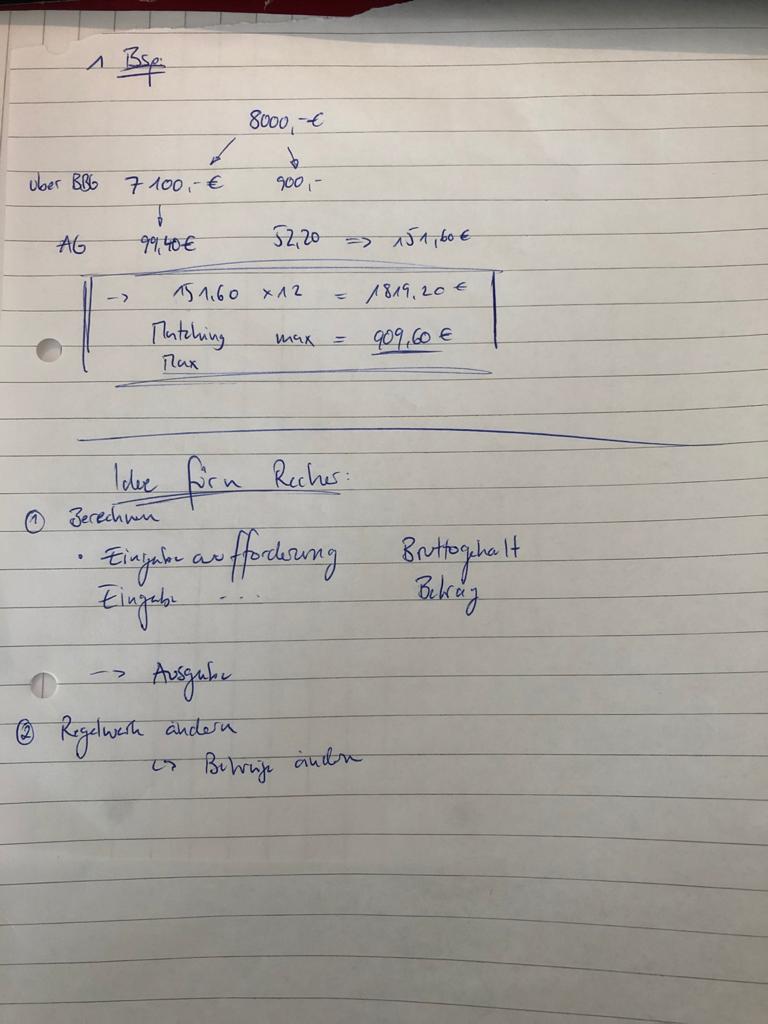 1 Bsp.
8000,-€
über BBG 7100,-€ 900,-
AG 99,40€ 52,20 => 151,60€
-> 151,60 x12 = 1819,20 €
Matching max = 909,60 €
Max
Idee für'n Rechner:
① Berechnen
• Eingabeaufforderung Bruttogehalt
Eingabe ... Betrag
--> Ausgabe
② Regelwerk ändern
↳ Beträge ändern